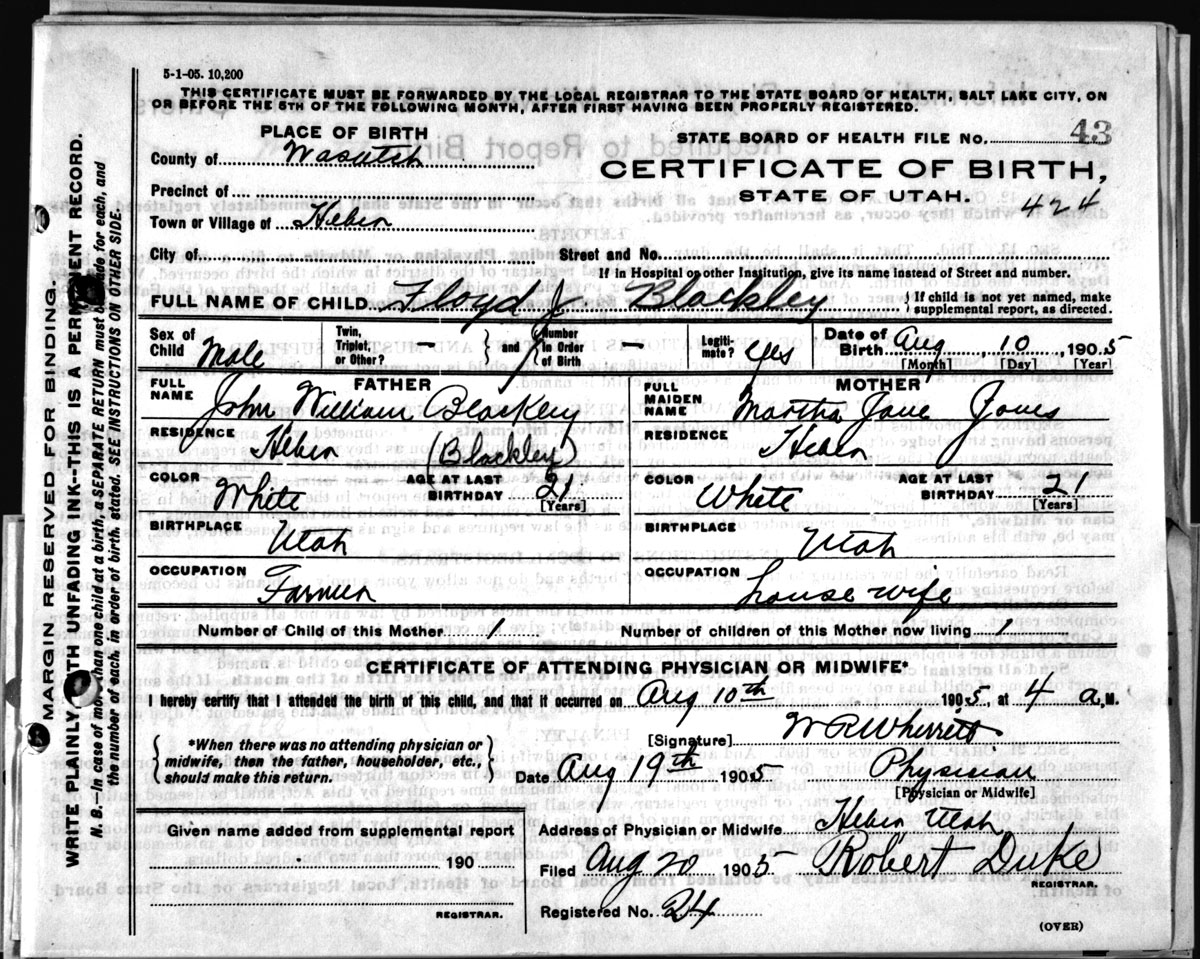 5-1-05. 10,200
THIS CERTIFICATE MUST BE FORWARDED BY THE LOCAL REGISTRAR TO THE STATE BOARD OF HEALTH, SALT LAKE CITY, ON
OR BEFORE THE 5TH OF THE FOLLOWING MONTH, AFTER FIRST HAVING BEEN PROPERLY REGISTERED.
PLACE OF BIRTH
STATE BOARD OF HEALTH FILE NO. 43
County of Wasatch
CERTIFICATE OF BIRTH,
STATE OF UTAH.
424
Precinct of
Town or Village of Heber
City of
Street and No.
If in Hospital or other Institution, give its name instead of Street and number.
FULL NAME OF CHILD Floyd J. Blackley
} If child is not yet named, make
supplemental report, as directed.
Sex of Child Male
Twin, Triplet, or Other? —
{ and } Number in Order of Birth —
Legiti-mate? yes
Date of Birth Aug 10 1905
[Month] [Day] [Year]
FATHER
FULL NAME John William Blackley
MOTHER
FULL MAIDEN NAME Martha Jane Jones
RESIDENCE Heber (Blackley)
RESIDENCE Heber
COLOR White AGE AT LAST BIRTHDAY 21 [Years]
COLOR White AGE AT LAST BIRTHDAY 21 [Years]
BIRTHPLACE Utah
BIRTHPLACE Utah
OCCUPATION Farmer
OCCUPATION housewife
Number of Child of this Mother 1
Number of children of this Mother now living 1
CERTIFICATE OF ATTENDING PHYSICIAN OR MIDWIFE*
I hereby certify that I attended the birth of this child, and that it occurred on Aug 10th 1905, at 4 a. M.
{ *When there was no attending physician or
midwife, then the father, householder, etc.,
should make this return. }
[Signature] W R Wherritt
Date Aug 19th 1905 Physician
[Physician or Midwife]
Given name added from supplemental report
190
REGISTRAR.
Address of Physician or Midwife Heber Utah
Filed Aug 20 1905 Robert Duke
REGISTRAR.
Registered No. 24
(OVER)
MARGIN RESERVED FOR BINDING.
WRITE PLAINLY WITH UNFADING INK—THIS IS A PERMANENT RECORD.
N. B.—In case of more than one child at a birth, a SEPARATE RETURN must be made for each, and
the number of each, in order of birth, stated. SEE INSTRUCTIONS ON OTHER SIDE.